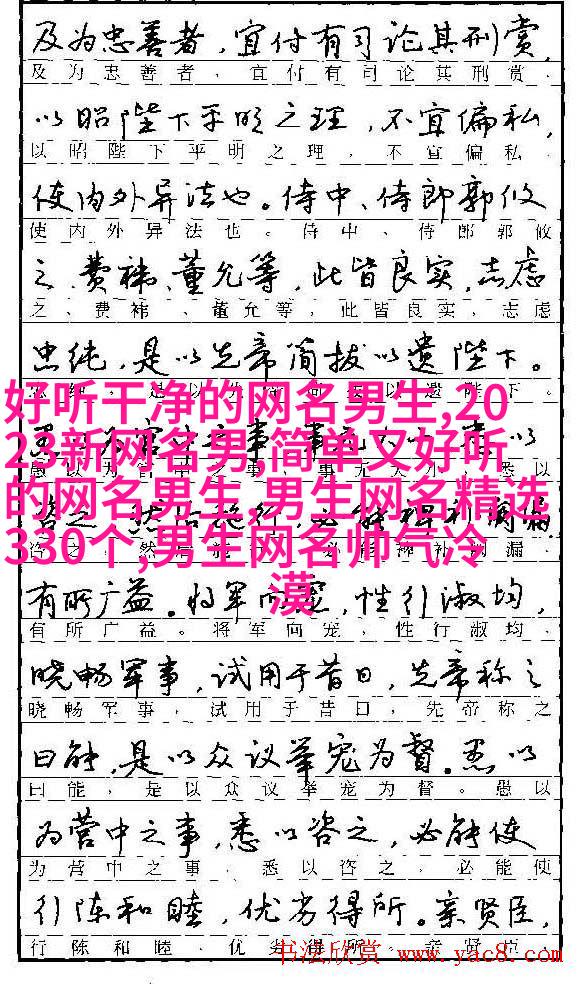 及为忠善者，宜付有司论其刑赏，
及为忠善者，宜付有司论其刑赏，
以昭陛下平明之理，不宜偏私，
以昭陛下平明之理，不宜偏私，
使内外异法也。侍中、侍郎郭攸
使内外异法也。侍中、侍郎郭攸
之、费祎、董允等，此皆良实，志虑
之、费祎、董允等，此皆良实，志虑
忠纯，是以先帝简拔以遗陛下。
好听干净的网名男生,20
23新网名男,简单又好听
的网名男生,男生网名精选
330个,男生网名帅气冷
漠
有所广益。将军向宠，性行淑均，
有所广益。将军向宠，性行淑均，
晓畅军事，试用于昔日，先帝称之
晓畅军事，试用于昔日，先帝称之
曰能，是以众议举宠为督。愚以
曰能，是以众议举宠为督。愚以
为营中之事，悉以咨之，必能使
为营中之事，悉以咨之，必能使
行陈和睦，优劣得所。亲贤臣，
行陈和睦，优劣得所。亲贤臣，
书法欣赏 www.yac8.com